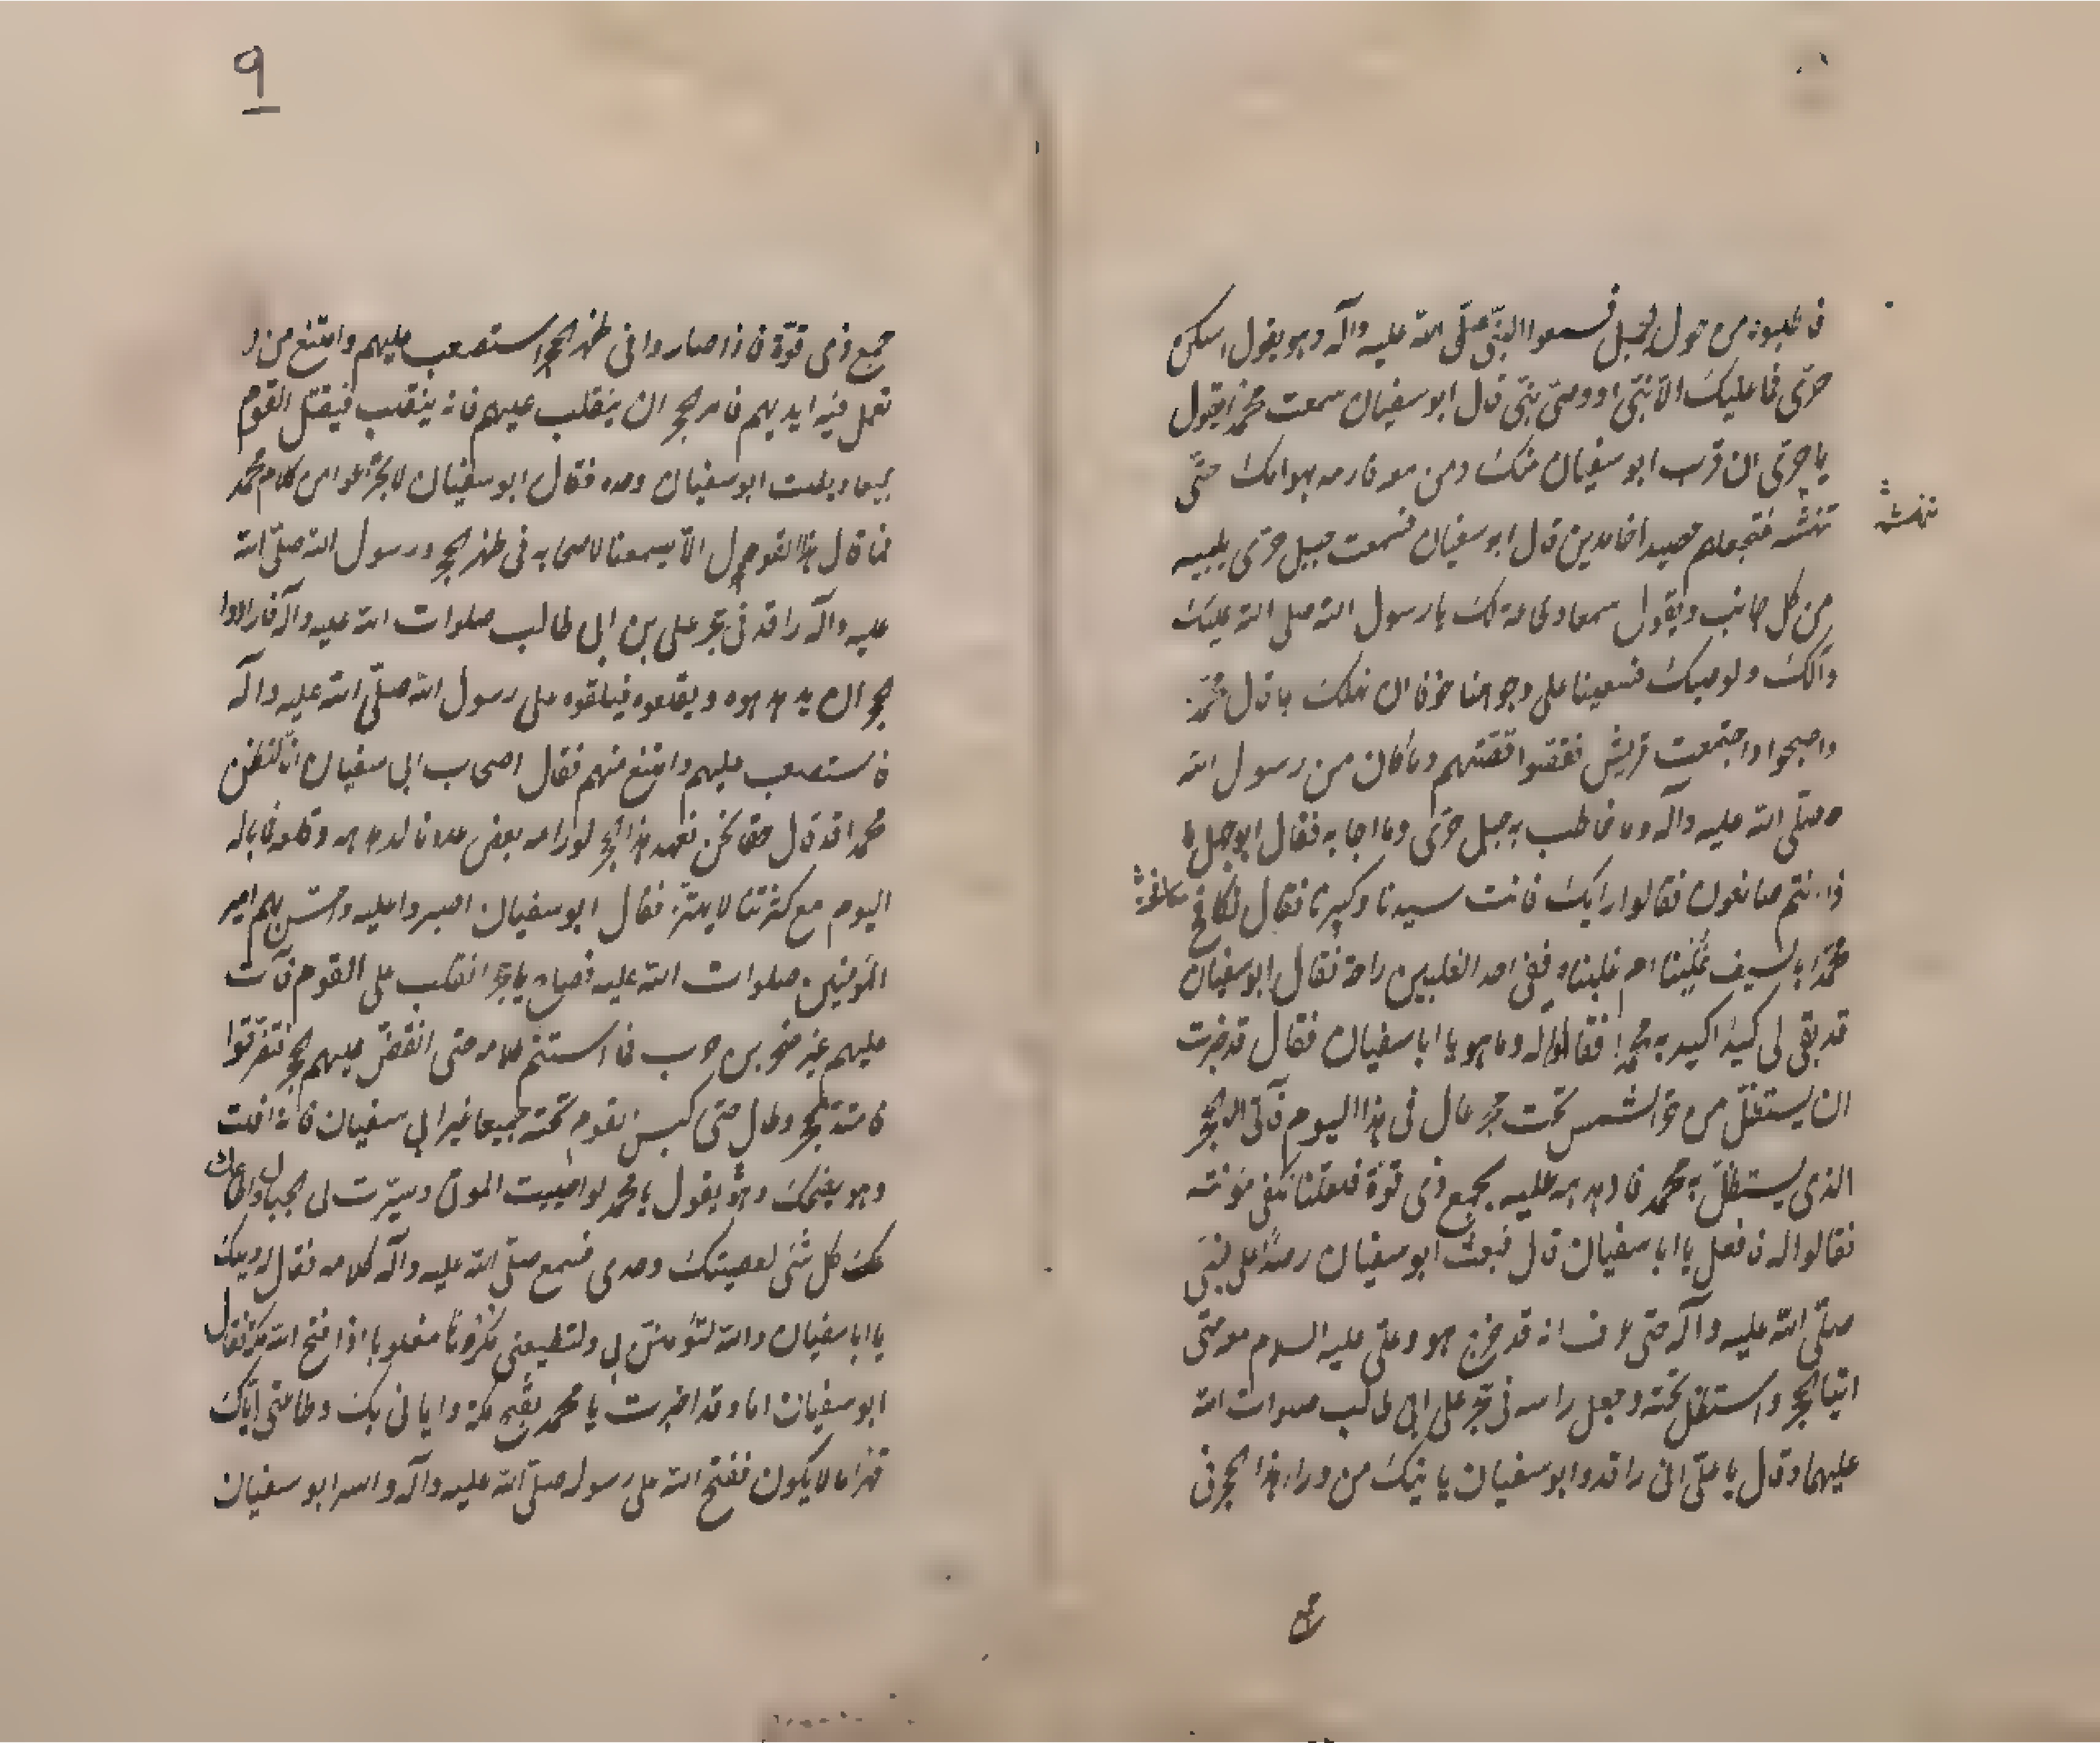 فاطلبوه من حول الجبل فسمعوا النبّي صلّى الله عليه وآله وهو يقول اسكن
حرّى فما عليك الّا نبّي او وصّى نبّي قال ابو سفيان سمعت محمّدا يقول
يا حرّى ان قرب ابو سفيان منك ومن معه فارمه بهوامك حتّى
تنهشه فتجعلهم حصيدا خامدين قال ابو سفيان فسمعت جبل حرّى يلبيه
تنهشه
من كل جانب ويقول سمعا وطاعة لك يا رسول الله صلى الله عليك
وآلك ولوصيك فسعينا على وجوهنا خوفا ان نهلك بما قال محمّد
واصبحوا واجتمعت قريش فقصّوا قصّتهم وما كان من رسول الله
صلّى الله عليه وآله وما خاطب به جبل حرّى وما اجابه فقال ابو جهل ما
ذا انتم صانعون فقالوا رايك فانت سيدنا وكبيرنا فقال نكافح
محمّدا بالسيف غلبنا ام غلبناه ففي احد الغلبين راحة فقال ابو سفيان
قد بقى لى كيدا اكيد به محمّدا فقالوا له وما هو يا ابا سفيان فقال قد خبرت
ان يستظلّ من حرّ الشمس تحت حجر عال في هذا اليوم فآتى الحجر
الذي يستظلّ به محمد فاهدهده عليه بجمع ذى قوّة فلعلّنا نكفى مؤنته
فقالوا له فافعل يا ابا سفيان قال فبعث ابو سفيان رصدا على النبّي
صلّى الله عليه وآله حتى عرف انه قد خرج هو وعلّى عليه السلام معه حتّى
اتيا الحجر واستظلّ تحته وجعل راسه في حجر على ابن ابي طالب صلوات الله
عليهما وقال يا علّى انى راقد وابو سفيان ياتيك من وراء هذا الحجر في
جمع
٩
جمع ذى قوّة فاذا صاروا في ظهر الحجر استصعب عليهم وامتنع من ان
تعمل فيه ايديهم فامر الحجر ان ينقلب عليهم فانه ينقلب فيقتل القوم
جميعا ويفلت ابو سفيان وحده فقال ابو سفيان لا تجزعوا من كلام محمّد
فما قال هذا القول الّا ليسمعنا لاصحابه في ظهر الحجر ورسول الله صلّى الله
عليه وآله راقد في حجر على بن ابي طالب صلوات الله عليه وآله فارادوا
الحجر ان يهدهدوه ويقلعوه فيلقوه على رسول الله صلّى الله عليه وآله
فاستصعب عليهم وامتنع منهم فقال اصحاب ابي سفيان انّا لنظن
محمدا قد قال حقا نحن نعهد هذا الحجر لو رامه بعض غلماننا لدهدهه وقلعه فما باله
اليوم مع كثرتنا لا يهتزّ فقال ابو سفيان اصبروا عليه وحسّ بهم امير
المؤمنين صلوات الله عليه فصاح يا حجر انقلب على القوم فآت
عليهم غير صخر بن حرب فما استتم كلامه حتى انقضّ عليهم الحجر فتفرّقوا
فامتدّ الحجر وطال حتى كبس القوم تحته جميعا غير ابي سفيان فانه افلت
وهو يضحك وهو يقول يا محمد لو احييت الموتى وسيّرت لى الجبال واطاعك
كل شئ لعصيتك وحدى فسمع صلّى الله عليه وآله كلامه فقال له ويلك
يا ابا سفيان والله لتؤمننّ بي ولتطيعنى مكرها مغلوبا اذا فتح الله مكة فقال
ابو سفيان اما وقد اخبرت يا محمد بفتح مكة وايمانى بك وطاعتى ايّاك
قهرا ما لا يكون ففتح الله على رسوله صلّى الله عليه وآله واسر ابو سفيان